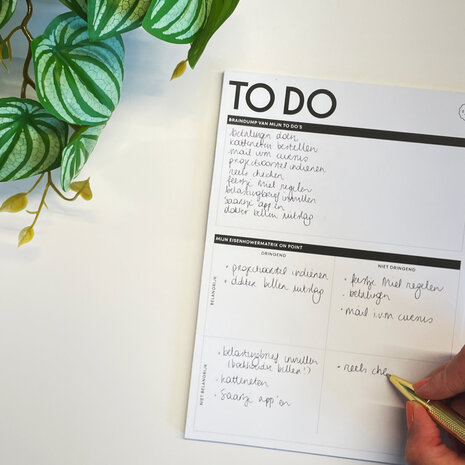 TO DO
BRAINDUMP VAN MIJN TO DO'S
betalingen doen
katteneten bestellen
mail ivm cursus
projectvoorstel indienen
reels checken
feestje Miel regelen
belastingbrief invullen
Saartje app'en
dokter bellen uitslag
MIJN EISENHOWERMATRIX ON POINT
DRINGEND
NIET DRINGEND
BELANGRIJK
• projectvoorstel indienen
• dokter bellen uitslag
• feestje Miel regelen
• betalingen
• mail i.v.m cursus
NIET BELANGRIJK
• belastingbrief invullen
(boekhouder bellen!)
• katteneten
• Saartje app'en
• reels che